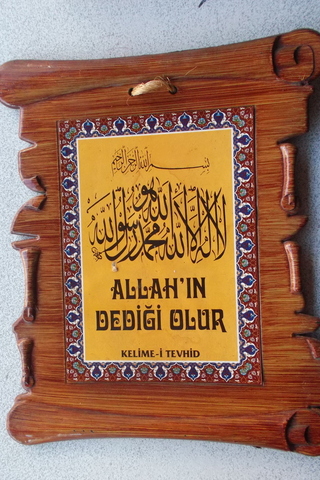 بسم الله الرحمن الرحيم
لا إله إلا الله محمد رسول الله
ALLAH'IN
DEDİĞİ OLUR
KELİME-İ TEVHİD